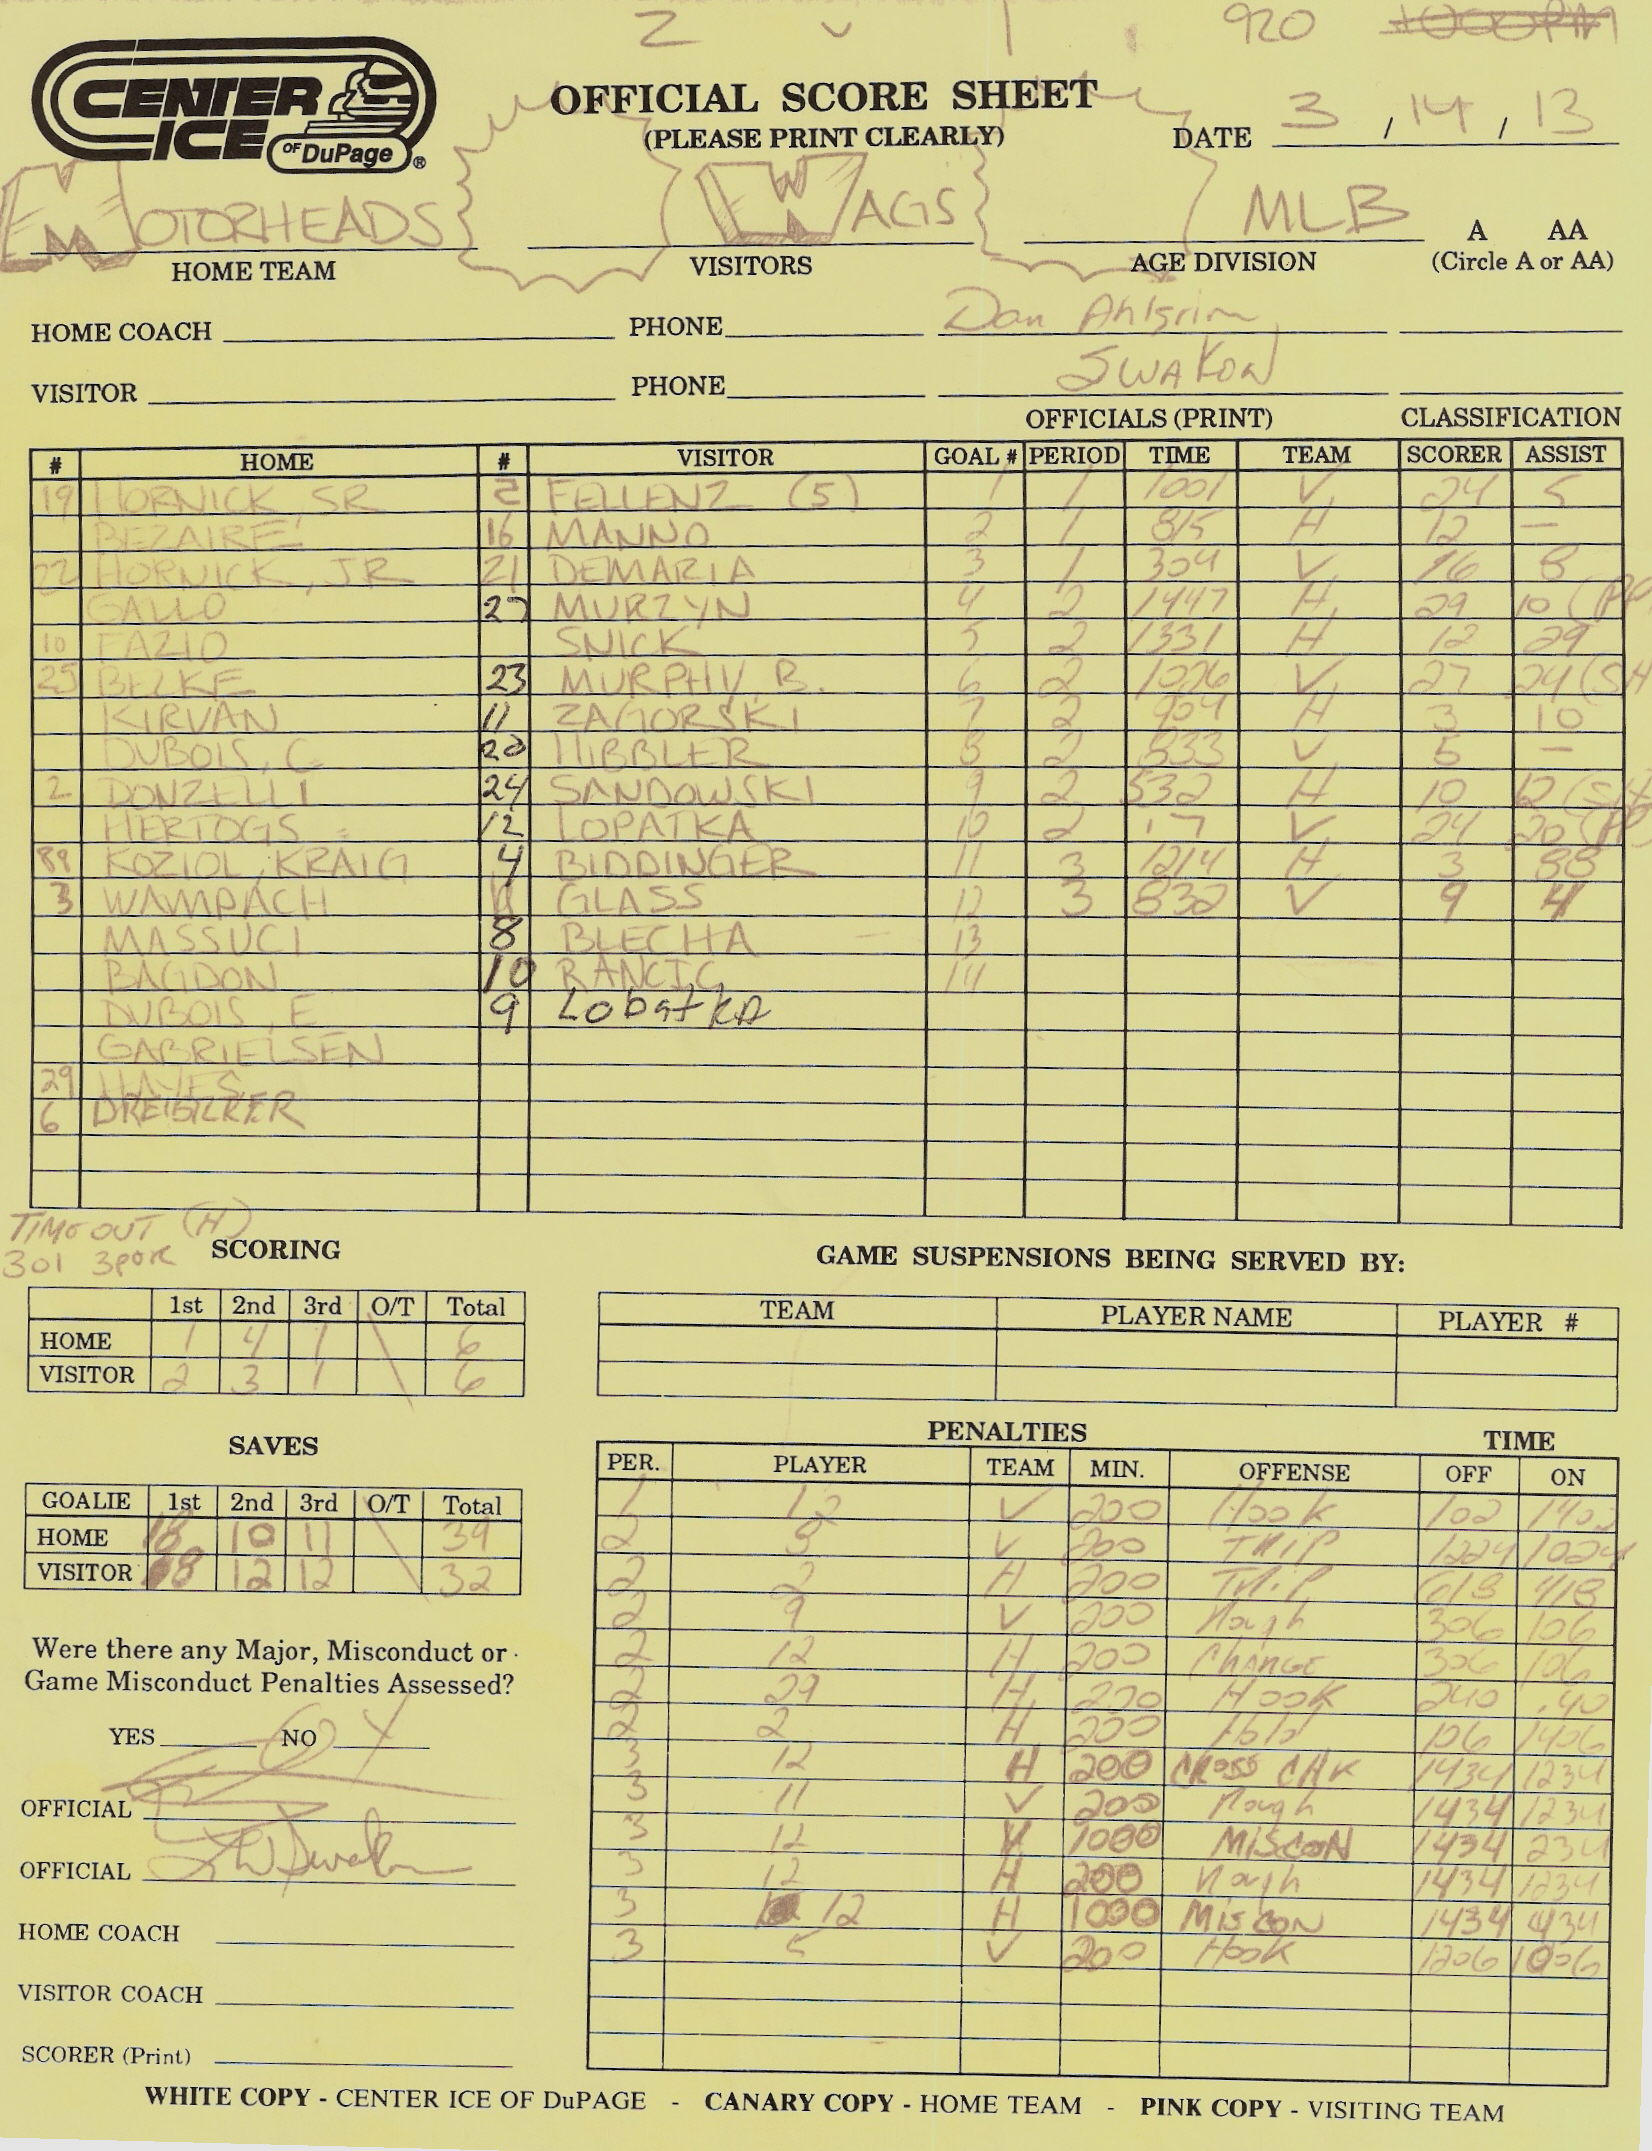 2 v 1 920
CENTER ICE OF DuPage ®
OFFICIAL SCORE SHEET
(PLEASE PRINT CLEARLY)
DATE 3 , 14 , 13
MOTORHEADS WAGS MLB A AA
HOME TEAM VISITORS AGE DIVISION (Circle A or AA)
HOME COACH PHONE Dan Ahlgrim
VISITOR PHONE SWAKOW
OFFICIALS (PRINT) CLASSIFICATION
# HOME # VISITOR GOAL # PERIOD TIME TEAM SCORER ASSIST
19 HORNICK, SR 2 FELLENZ (5) 1 1 1001 V 24 5
BEZAIRE 16 MANNO 2 1 815 H 12 —
22 HORNICK, JR 21 DEMARIA 3 1 304 V 16 8
GALLO 27 MURZYN 4 2 1447 H 29 10 (PP)
10 FAZIO SNICK 5 2 1331 H 12 29
25 BELKE 23 MURPHY, B. 6 2 1026 V 27 24 (SH
KIRVAN 11 ZAGORSKI 7 2 904 H 3 10
DUBOIS, C 20 HIBBLER 8 2 833 V 5 —
2 DONZELLI 24 SANDOWSKI 9 2 532 H 10 12 (SH
HERTOGS 12 LOPATKA 10 2 17 V 24 20 (PP
89 KOZIOL, KRAIG 4 BIDDINGER 11 3 1214 H 3 88
3 WAMPACH GLASS 12 3 832 V 9 4
MASSUCI 8 BLECHA 13
BAGDON 10 RANCIC 14
DUBOIS, E 9 LobatKA
GABRIELSEN
29 HAYES
6 DREIBILKER
TIMEOUT (H)
301 3per SCORING GAME SUSPENSIONS BEING SERVED BY:
1st 2nd 3rd O/T Total TEAM PLAYER NAME PLAYER #
HOME 1 4 1 6
VISITOR 2 3 1 6
SAVES PENALTIES TIME
PER. PLAYER TEAM MIN. OFFENSE OFF ON
GOALIE 1st 2nd 3rd O/T Total
HOME 18 10 11 39
VISITOR 8 12 12 32
1 12 V 200 Hook 102 1402
2 8 V 200 TRIP 1224 1024
2 2 H 200 TRIP 618 418
2 9 V 200 Rough 306 106
2 12 H 200 CHANGE 306 106
2 29 H 200 HOOK 240 .40
2 2 H 200 Hold 106 1406
3 12 H 200 CROSS CHK 1434 1234
3 11 V 200 Rough 1434 1234
3 12 V 1000 MISCON 1434 234
3 12 H 200 Rough 1434 1234
3 12 H 1000 MISCON 1434 434
3 5 V 200 Hook 1206 1006
Were there any Major, Misconduct or
Game Misconduct Penalties Assessed?
YES NO
OFFICIAL
OFFICIAL
HOME COACH
VISITOR COACH
SCORER (Print)
WHITE COPY - CENTER ICE OF DuPAGE - CANARY COPY - HOME TEAM - PINK COPY - VISITING TEAM